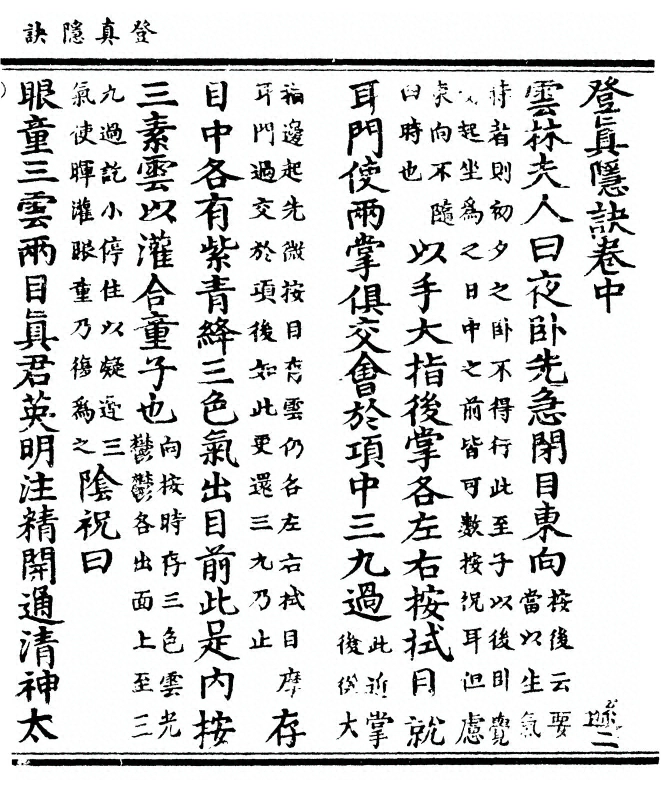 登真隱訣
登真隱訣卷中 二
雲林夫人曰夜卧先急閉目東向按後云要當以生氣
時者則初夕之卧不得行此至子以後卧覺起坐為之日中之前皆可數按況耳但慮
東向不隨時也以手大指後掌各左右按拭目就
耳門使兩掌俱交會於項中三九過此近掌後從大
指邊起先微按目眥雲仍各左右拭目摩耳門過交於項後如此更還三九乃止存
目中各有紫青絳三色氣出目前此是内按
三素雲以灌合童子也向按時存三色雲光鬱鬱各出面上至三
九過訖小停住以凝三氣使暉灌眼童乃復為之陰祝曰
眼童三雲兩目真君英明注精開通清神太